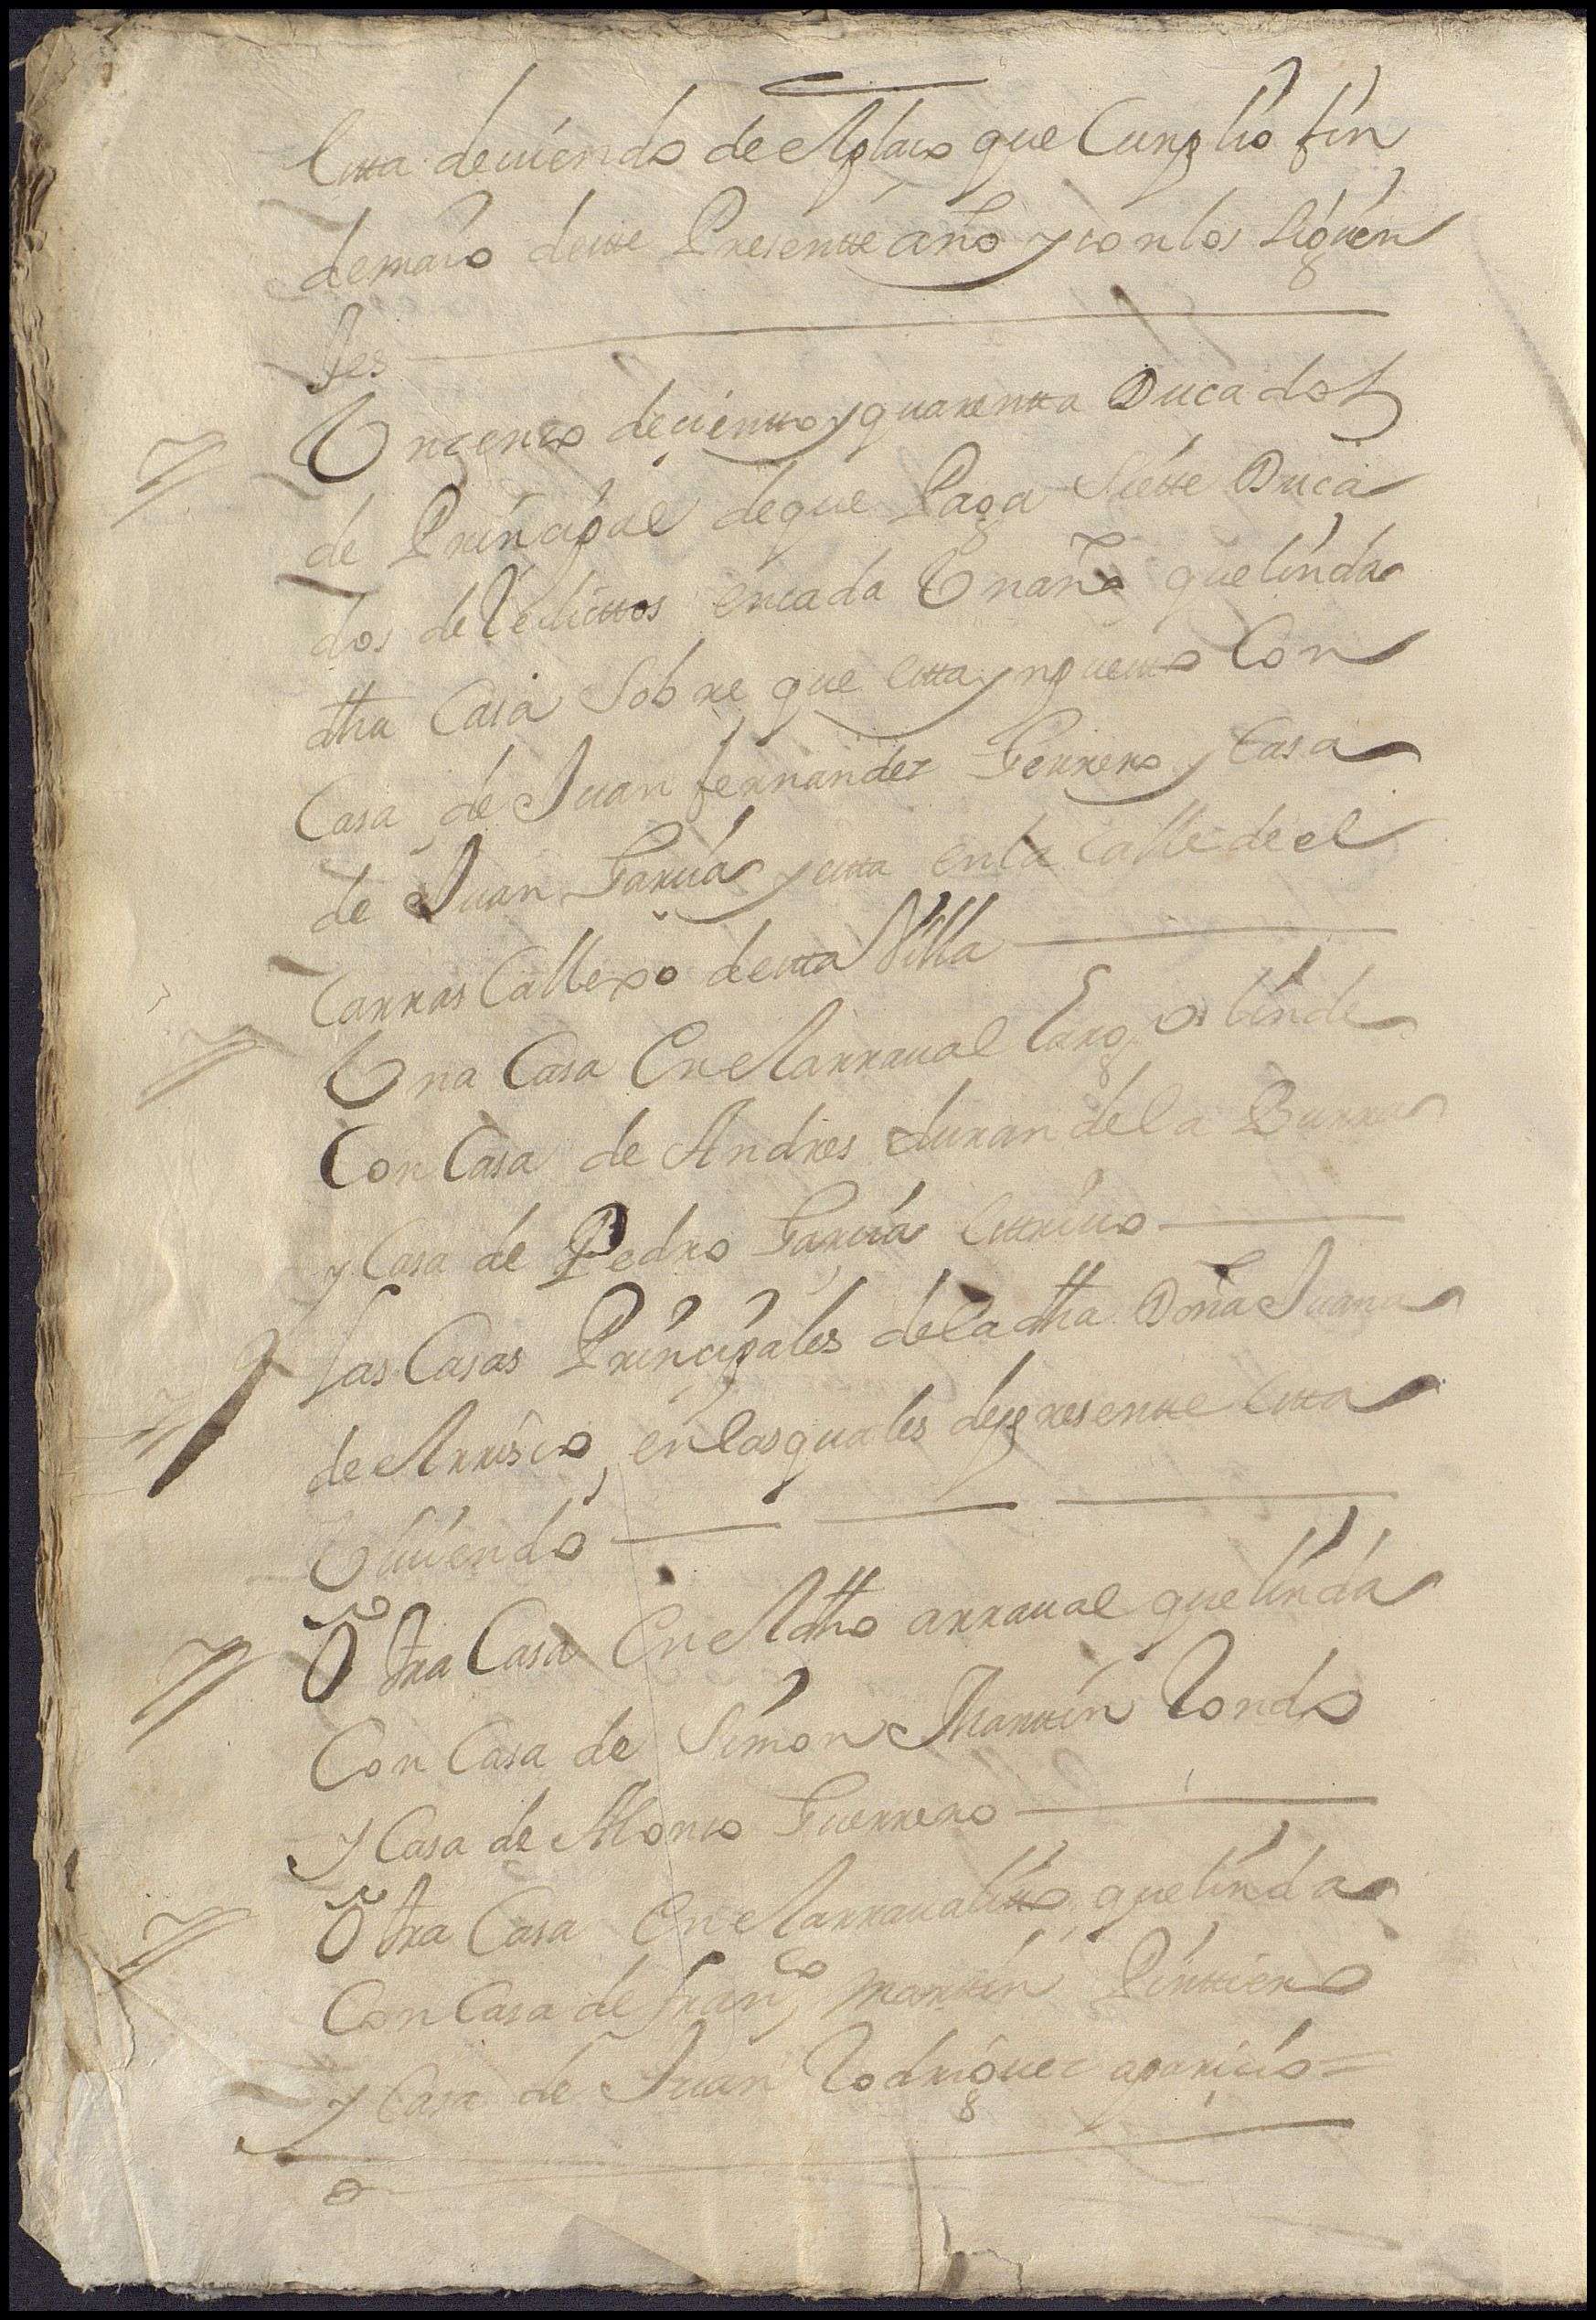 esta deviendo de el plazo que Cunplio fin
demaio deste Presente año y son los siguien
tes
Un censo de ciento y quarenta Ducados
de Principal de que Paga Siete Duca
dos de Reditos en cada Un año que linda
dha Casa Sobre que esta ynpuesto Con
Casa de Juan fernandez Ferrero y Casa
de Juan Garcia y esta en la Calle de el
Carras Callexo desta Villa
Una Casa En el arraual Largo linde
Con Casa de Andres duran de la Burra
y Casa de Pedro Garcia
Las Casas Principales de la dha Doña Juana
de en las quales de presente esta
Viuiendo
Otra Casa En el dho arraual que linda
Con Casa de Simon Martin Rondo
y Casa de Alonso Guerrero
Otra Casa En el arraualito que linda
Con Casa de Franco martin
y Casa de Juan Rodriguez aparicio=